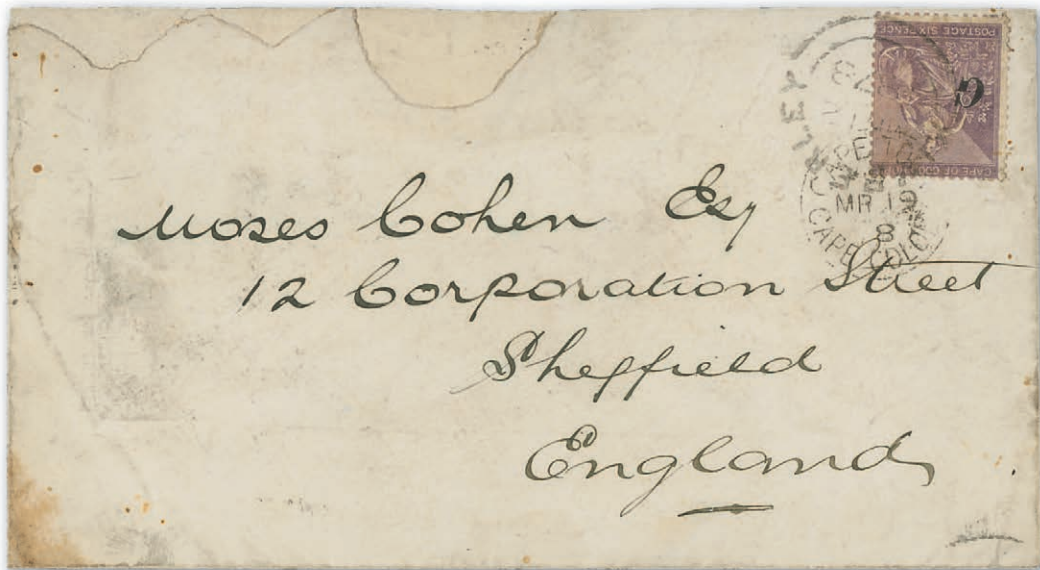 POSTAGE SIX PENCE
G
CAPE OF GOOD
MR 19
8
CAPE COLONY
Moses Cohen Esq
12 Corporation Street
Sheffield
England